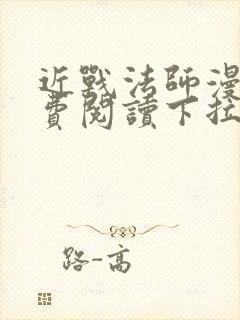 近戰法師漫
費閱讀下拉
路-高